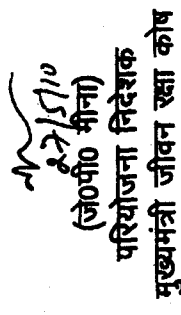 27/5/10
(जे0पी0 मीना)
परियोजना निदेशक
मुख्यमंत्री जीवन रक्षा कोष